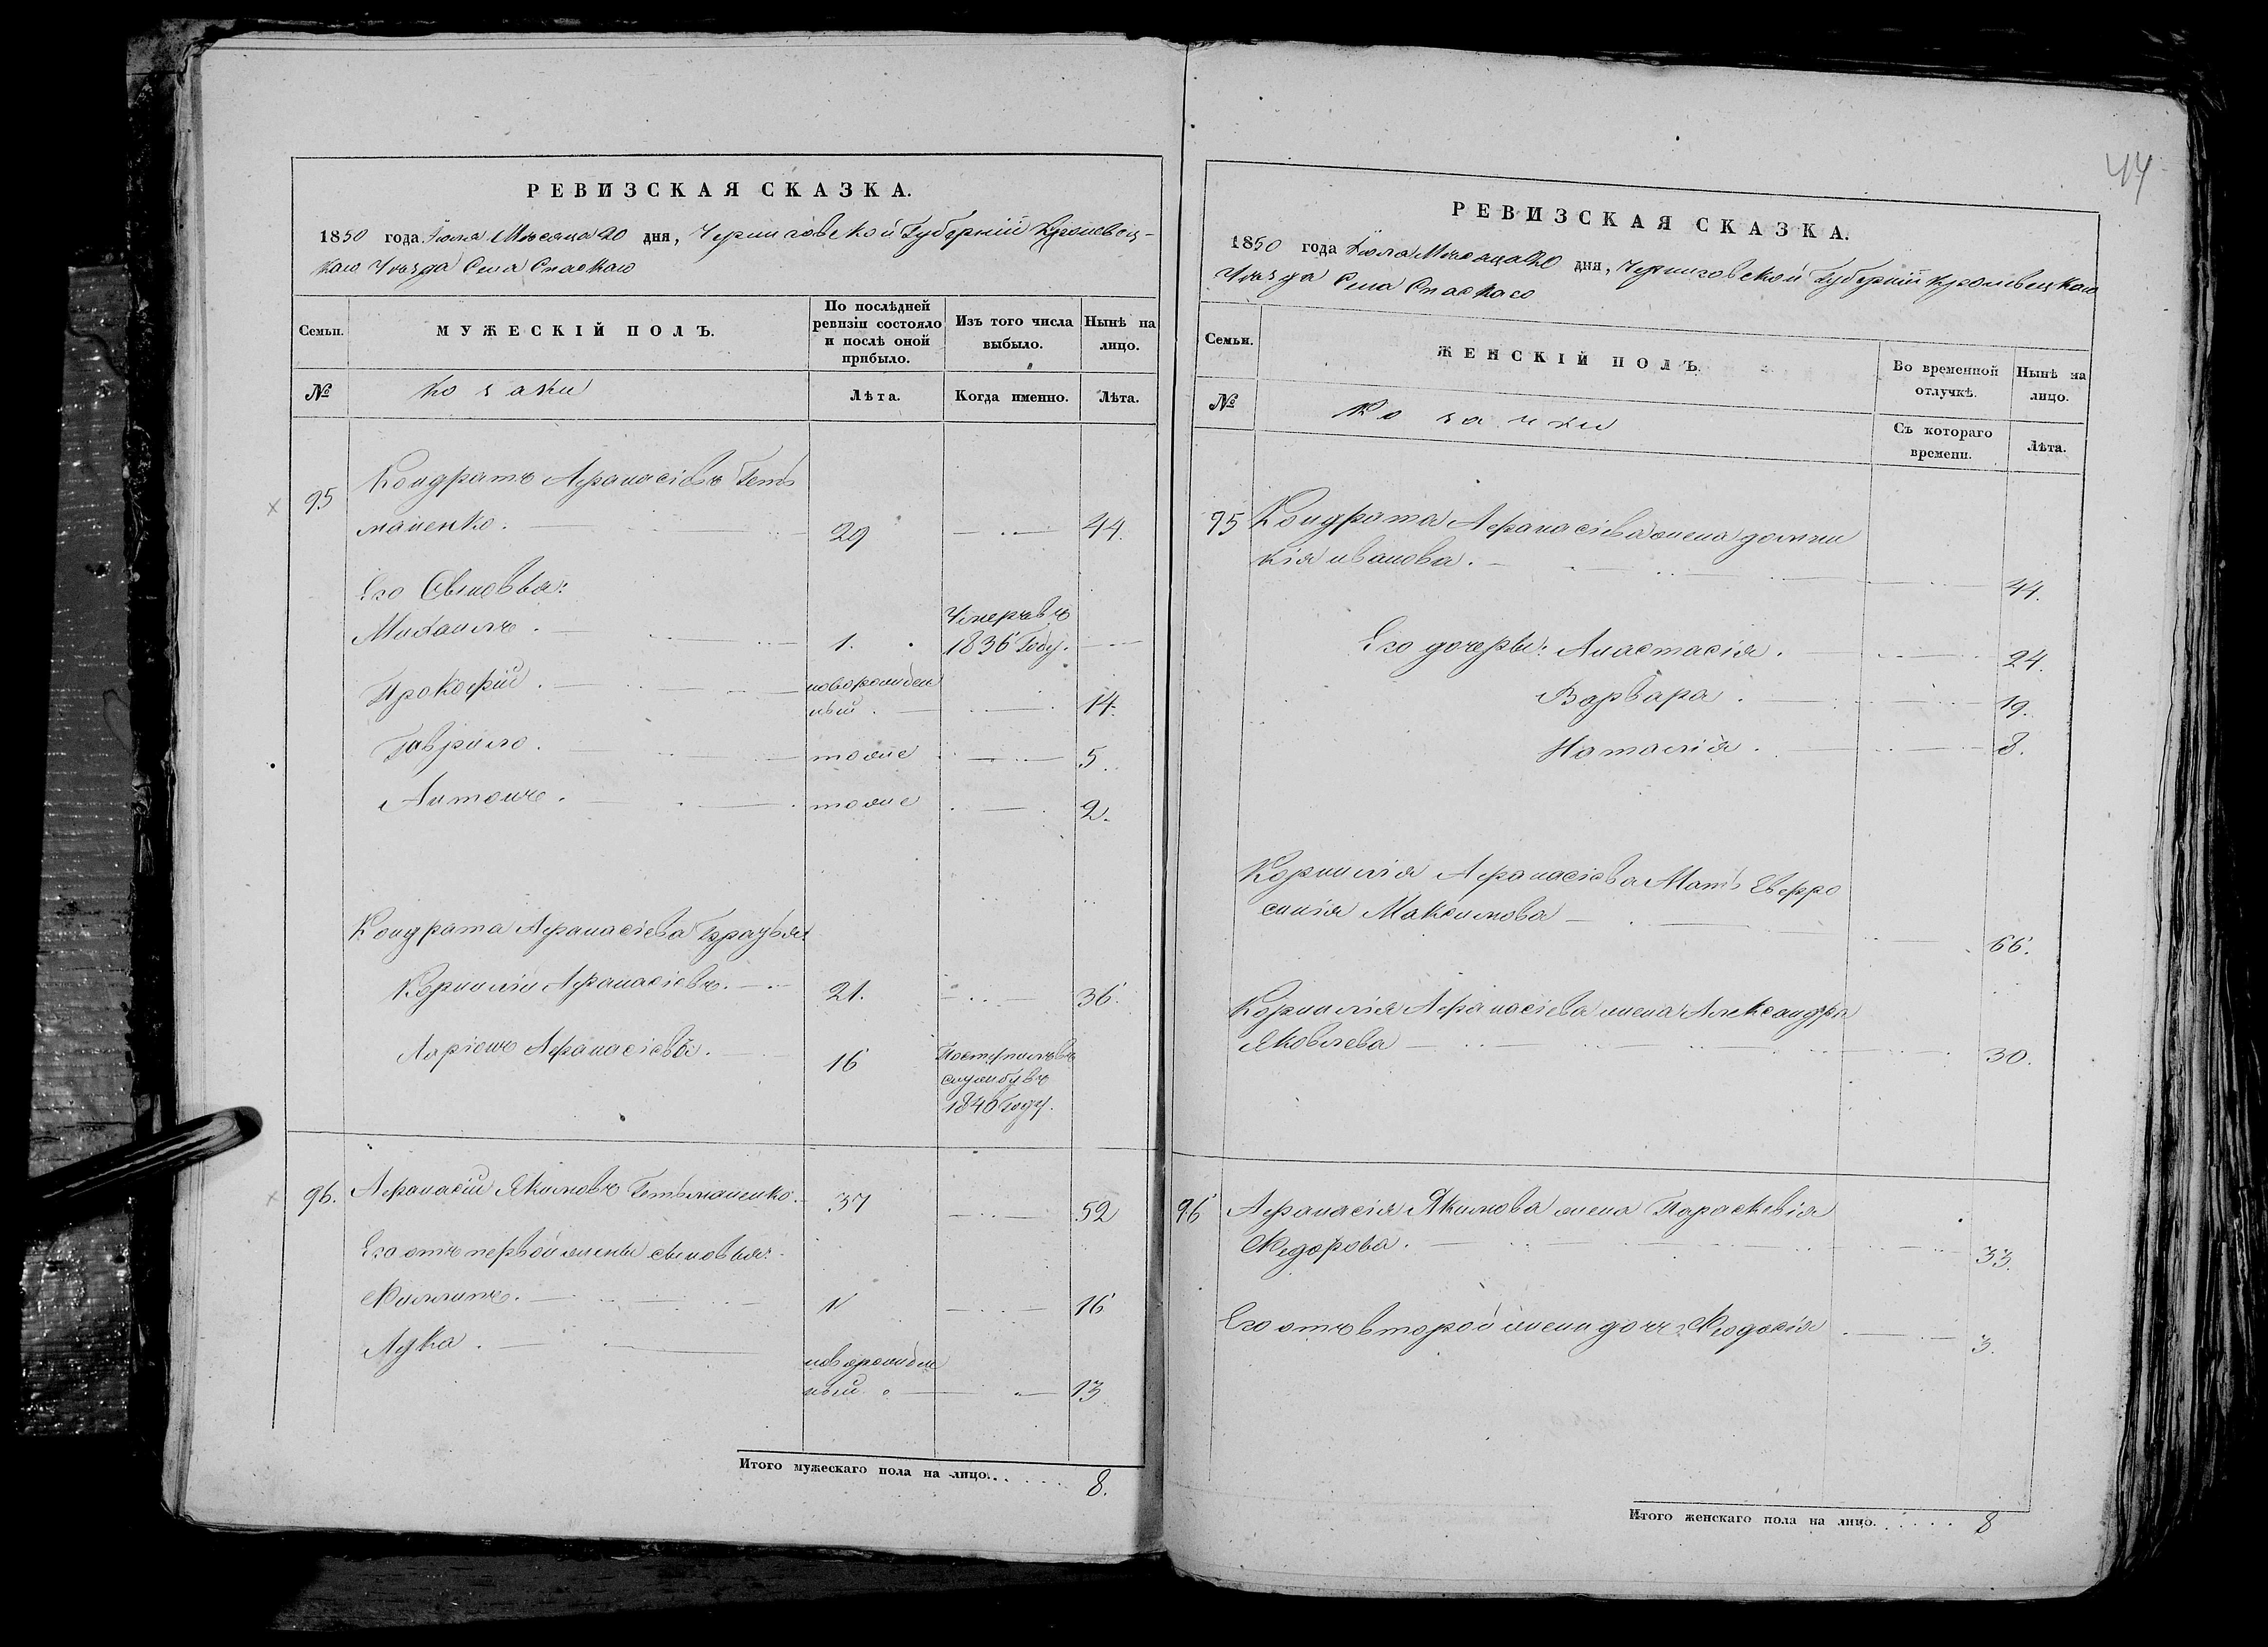 РЕВИЗСКАЯ СКАЗКА.
1850 года Июля Месяца 20 дня, Черниговской Губернии Кролевец-
каго Уезда Села Спаскаго
Семьи.
МУЖЕСКІЙ ПОЛЪ.
По послѣдней ревизіи состояло и послѣ оной прибыло.
Изъ того числа выбыло.
Нынѣ на лицо.
№
Козаки
Лѣта.
Когда именно.
Лѣта.
95
Кондратъ Афанасіевъ Геть
маненко.
29
44.
Его Сыновья:
Михаилъ.
1.
Умеръ въ
1836 Году.
Прокофій.
новорожден
ный.
14.
Гаврило.
тоже
5.
Антонъ.
тоже
2.
Кондрата Афанасіева Братья:
Корнилій Афанасіевъ.
21.
36.
Ларіонъ Афанасіевъ.
16
Поступилъ въ
службу въ
1840 Году.
96.
Афанасій Якимовъ Гетьманенко.
37
52
Его отъ первой жены сыновья:
Филипъ.
1/
16
Лука.
новорожден
ный.
13
Итого мужескаго пола на лицо. 8.
44
РЕВИЗСКАЯ СКАЗКА.
1850 года Июля Месяца 20 дня, Черниговской Губерніи Кролевецкаго
Уезда Села Спаскаго
Семьи.
ЖЕНСКІЙ ПОЛЪ.
Во временной отлучкѣ.
Нынѣ на лицо.
№
Козачки
Съ котораго времени.
Лѣта.
95
Кондрата Афанасіева жена домни
кія иванова.
44.
Его дочеры: Анастасія.
24.
Варвара.
19.
Наталія.
8.
Корнилія Афанасіева Мать Евфро
синія Максимова
66.
Корнилія Афанасіева жена Александра
Яковлева
30.
96
Афанасія Якимова жена Параскевія
Федорова.
33.
Его отъ второй жены дочь Феодосія
3.
Итого женскаго пола на лицо. 8